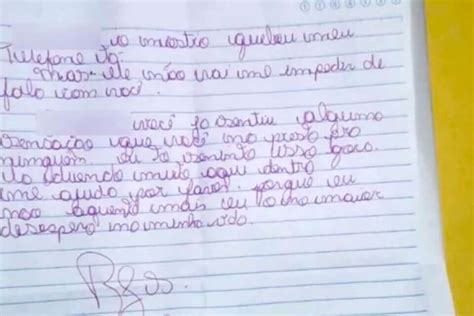 o mostro quebou meu
Telefone já.
mas ele não vai me impedir de
falo com você.
você ja sentiu alguma
sensação que você não presta pra
ninguém. eu to sentindo isso
Ta duendo muito aqui dentro
me ajuda por favor. porque eu
não aguento mais eu to no maior
desespero na minha vida.